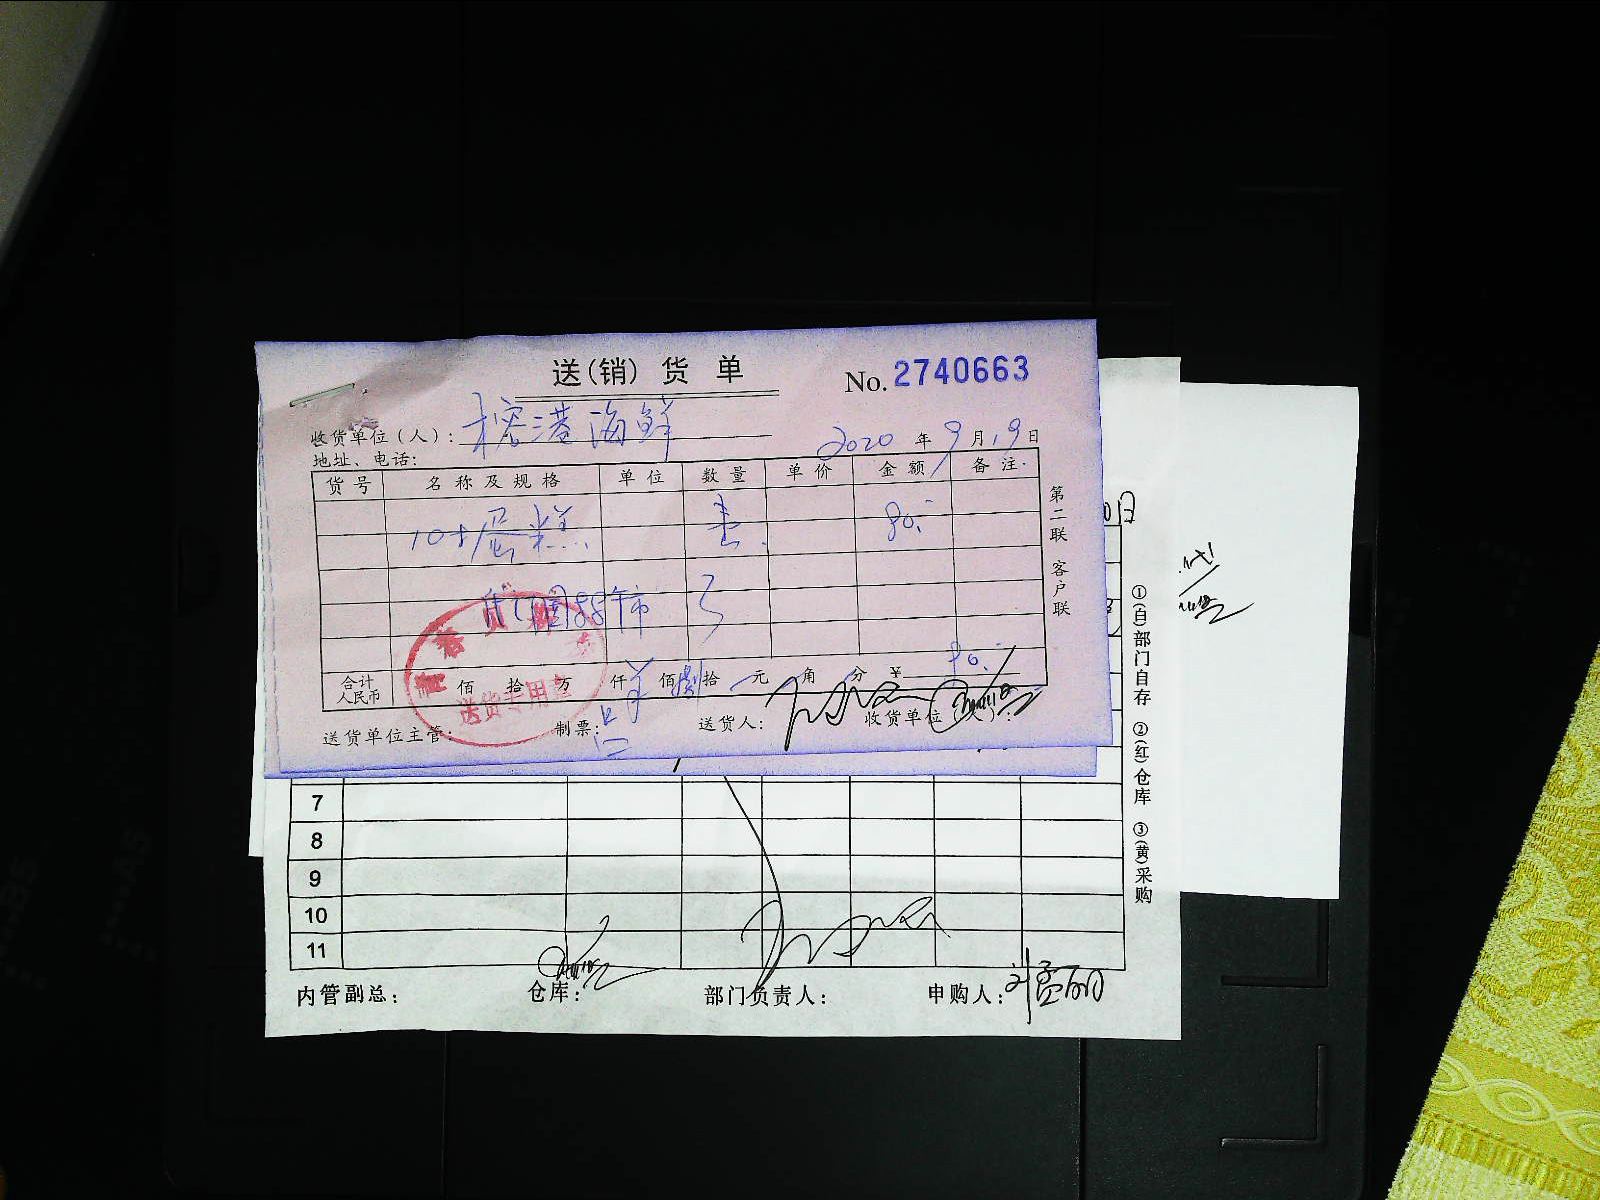 送(销)货单
No. 2740663
收货单位(人): 榕港海鲜
2020 年 9 月 19 日
地址、电话:
货号 名称及规格 单位 数量 单价 金额 备注
10寸蛋糕 80.-
合计人民币 佰 拾 万 仟 佰 捌 拾 元 角 分 ¥ 80.-
送货单位主管: 制票: 吕 送货人: 收货单位(人):
第二联 客户联
送货专用章
日
7
8
9
10
11
①(白)部门自存 ②(红)仓库 ③(黄)采购
内管副总: 仓库: 部门负责人: 申购人: 刘孟丽